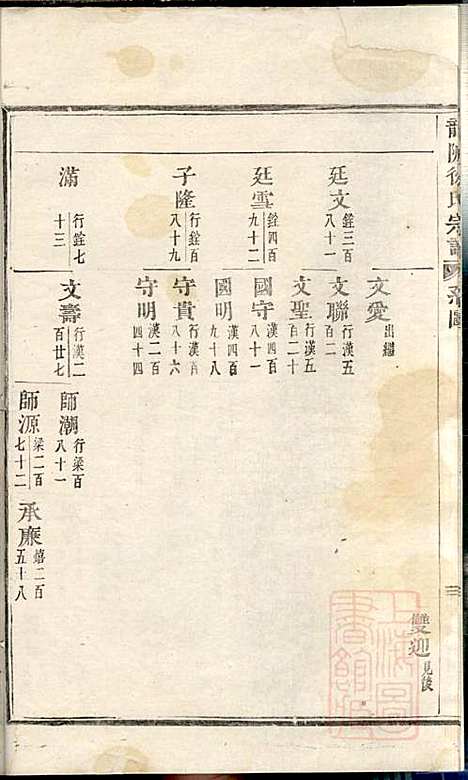 徐氏宗譜
雙迎見後
文愛 出繼
廷文 銓三百八十一
文聯 行漢五百二
文聖 行漢五百二十
廷雪 銓四百九十二
國守 漢四百八十一
國明 漢四百九十八
子隆 行銓百八十九
守貴 行漢百八十六
守明 漢二百四十四
滿 行銓七十三
文壽 行漢二百廿七
師潮 行梁百八十一
師源 梁二百七十二
承廉 嬉二百五十八
上海圖書館藏